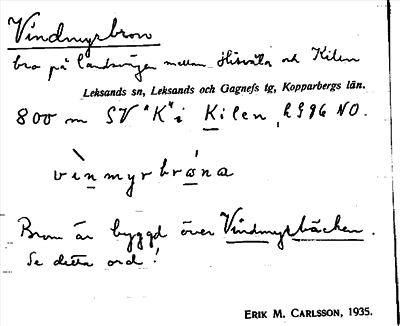 Vindmyrbron
bro på landsvägen mellan Hisvåla och Kilen
Leksands sn, Leksands och Gagnefs tg, Kopparbergs län.
800 m SV "K" i Kilen, NO.
vinmyrbrona
Bron är byggd över Vindmyrbäcken.
Se detta ord!
ERIK M. CARLSSON, 1935.